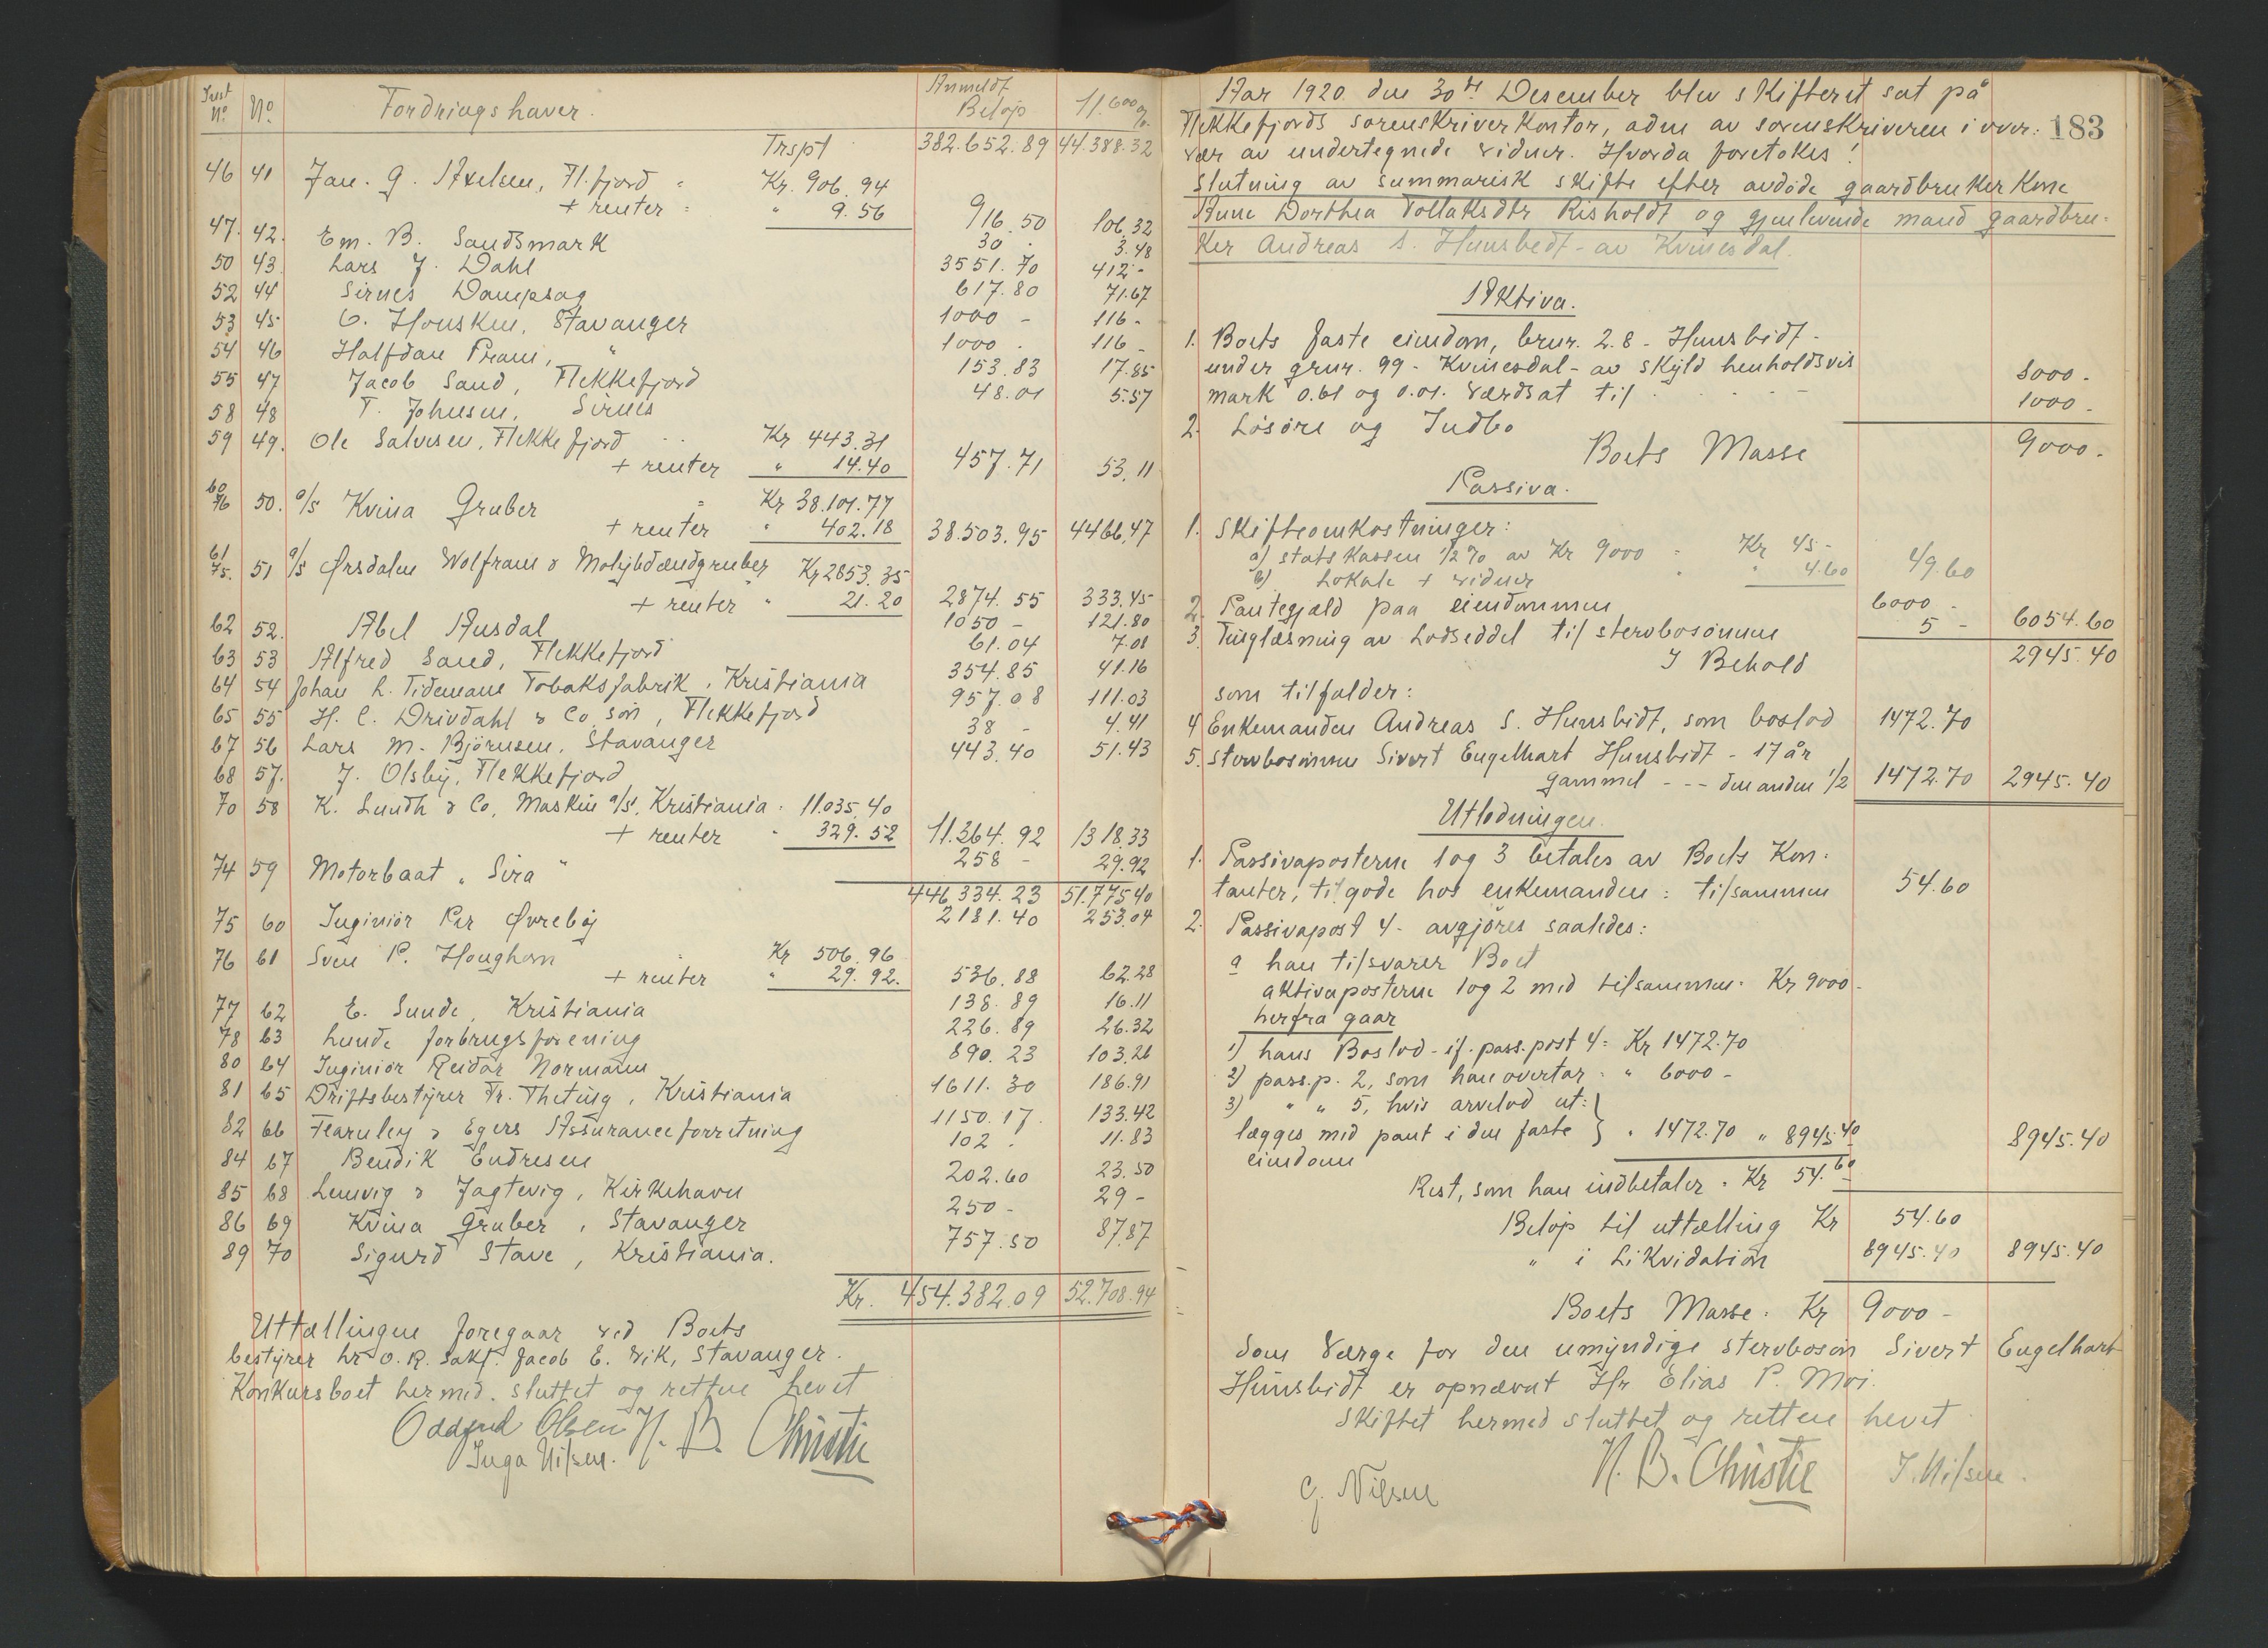 Just No. No. Fordringshaver. Anmeldt Beløp 11.600 %
Trspt 382.652.89 44.388.32
46 41 Jan. G. Axelsen, Fl.fjord Kr. 906.94
+ renter " 9.56 916.50 106.32
47. 42. Em. B. Sandsmark 30. 3.48
50 43. Lars J. Dahl 3551.70 412-
52 44 Sirnes Dampsag 617.80 71.67
53 45 O. Housken, Stavanger 1000 - 116-
54 46 Halfdan Prann, " 1000. 116-
55 47 Jacob Sand, Flekkefjord 153.83 17.85
58 48 T. Johnsen, Sirnes 48.01 5.57
59 49. Ole Salvesen, Flekkefjord Kr 443.31
+ renter " 14.40 457.71 53.11
60/76 50. a/s Kvina Gruber Kr 38.101.77
+ renter " 402.18 38.503.95 4466.47
61/75. 51 a/s Ørsdalen Wolfram & Molybdændgruber Kr 2853.35
+ renter " 21.20 2874.55 333.45
62 52. Abel Ausdal 1050 - 121.80
63 53 Alfred Sand, Flekkefjord 61.04 7.08
64 54 Johan L. Tidemans Tobaksfabrik, Kristiania 354.85 41.16
65 55 H. C. Drivdahl & Co. søn, Flekkefjord 957.08 111.03
67 56 Lars M. Bjørnsen, Stavanger 38 - 4.41
68 57. J. Olsby, Flekkefjord 443.40 51.43
70 58 K. Lundh & Co, Maskin a/s, Kristiania 11.035.40
+ renter " 329.52 11.364.92 1318.33
74 59 Motorbaat "Sira" 258 - 29.92
446.334.23 51.775.40
75 60 Ingeniør Per Øvrebø 2181.40 253.04
76 61 Sven P. Houghom Kr 506.96
+ renter " 29.92. 536.88 62.28
77 62 E. Sunde, Kristiania 138.89 16.11
78 63 Lunde forbrugsforening 226.89 26.32
80 64 Ingeniør Reidar Normann 890.23 103.26
81 65 Driftsbestyrer Fr. Theting, Kristiania 1611.30 186.91
82 66 Fearnley & Egers Assuranceforretning 1150.17. 133.42
84 67 Bendik Endresen 102. 11.83
85 68 Lemvig & Jagtevig, Kirkehavn 202.60 23.50
86 69 Kvina Gruber, Stavanger 250 - 29-
89 70 Sigurd Stave, Kristiania. 757.50 87.87
Kr. 454.382.09 52.708.94
Uttællingen foregaar ved Boets
bestyrer hr. o.r. sakf. Jacob E. Wik, Stavanger.
Konkursboet hermed sluttet og retten hevet
Oddfrid Olsen N. B. Christie
Inga Nilsen.
183
Aar 1920 den 30te Desember blev skifteret sat på
Flekkefjords sorenskriverkontor, adm av sorenskriveren i over-
vær av undertegnede vidner. Hvorda foretokes:
Slutning av summarisk skifte efter avdøde gaardbrukerkone
Anne Dorthea Tollaksdtr Risholdt og gjenlevende mand gaardbru-
ker Andreas S. Hunsbedt - av Kvinesdal.
Aktiva.
1. Boets faste eiendom, brnr. 2.8 - Hunsbedt -
under grnr. 99 - Kvinesdal - av skyld henholdsvis
mark 0.61 og 0.01. Værdsat til 8000 -
2. Løsøre og Indbo 1000 -
Boets Masse 9000 -
Passiva.
1. Skifteomkostninger:
a) statskassen 1/2 % av Kr 9000 = Kr 45 -
b) Lokale + vidner " 4.60 49.60
2. Pantegjæld paa eiendommen 6000 -
3. Tinglæsning av Lodseddel til stervbosønnen 5 - 6054.60
I Behold 2945.40
som tilfalder:
4 Enkemanden Andreas S. Hunsbedt, som boslod 1472.70
5. Stervbosønnen Sivert Engelhart Hunsbedt - 17 år
gammel - - - den anden 1/2 1472.70 2945.40
Utlodningen.
1. Passivaposterne 1 og 3 betales av Boets Kon-
tanter, tilgode hos enkemanden: tilsammen 54.60
2. Passivapost 4 - avgjøres saaledes:
a han tilsvarer Boet
aktivaposterne 1 og 2 med tilsammen. Kr 9000 -
herfra gaar
1) hans Boslod - jf. pass.post 4 = Kr 1472.70
2) pass.p. 2, som han overtar - " 6000 -
3) " " 5, hvis arvelod ut-
lægges med pant i den faste } " 1472.70 " 8945.40 8945.40
eiendom
Rest, som han indbetaler. Kr 54.60
Beløp til uttælling Kr 54.60
" i Likvidation 8945.40 8945.40
Boets Masse. Kr 9000 -
Som Værge for den umyndige stervbosøn Sivert Engelhart
Hunsbedt er opnævnt Hr Elias P. Moi.
Skiftet hermed sluttet og retten hevet
G. Nilsen N. B. Christie I. Nilsen.